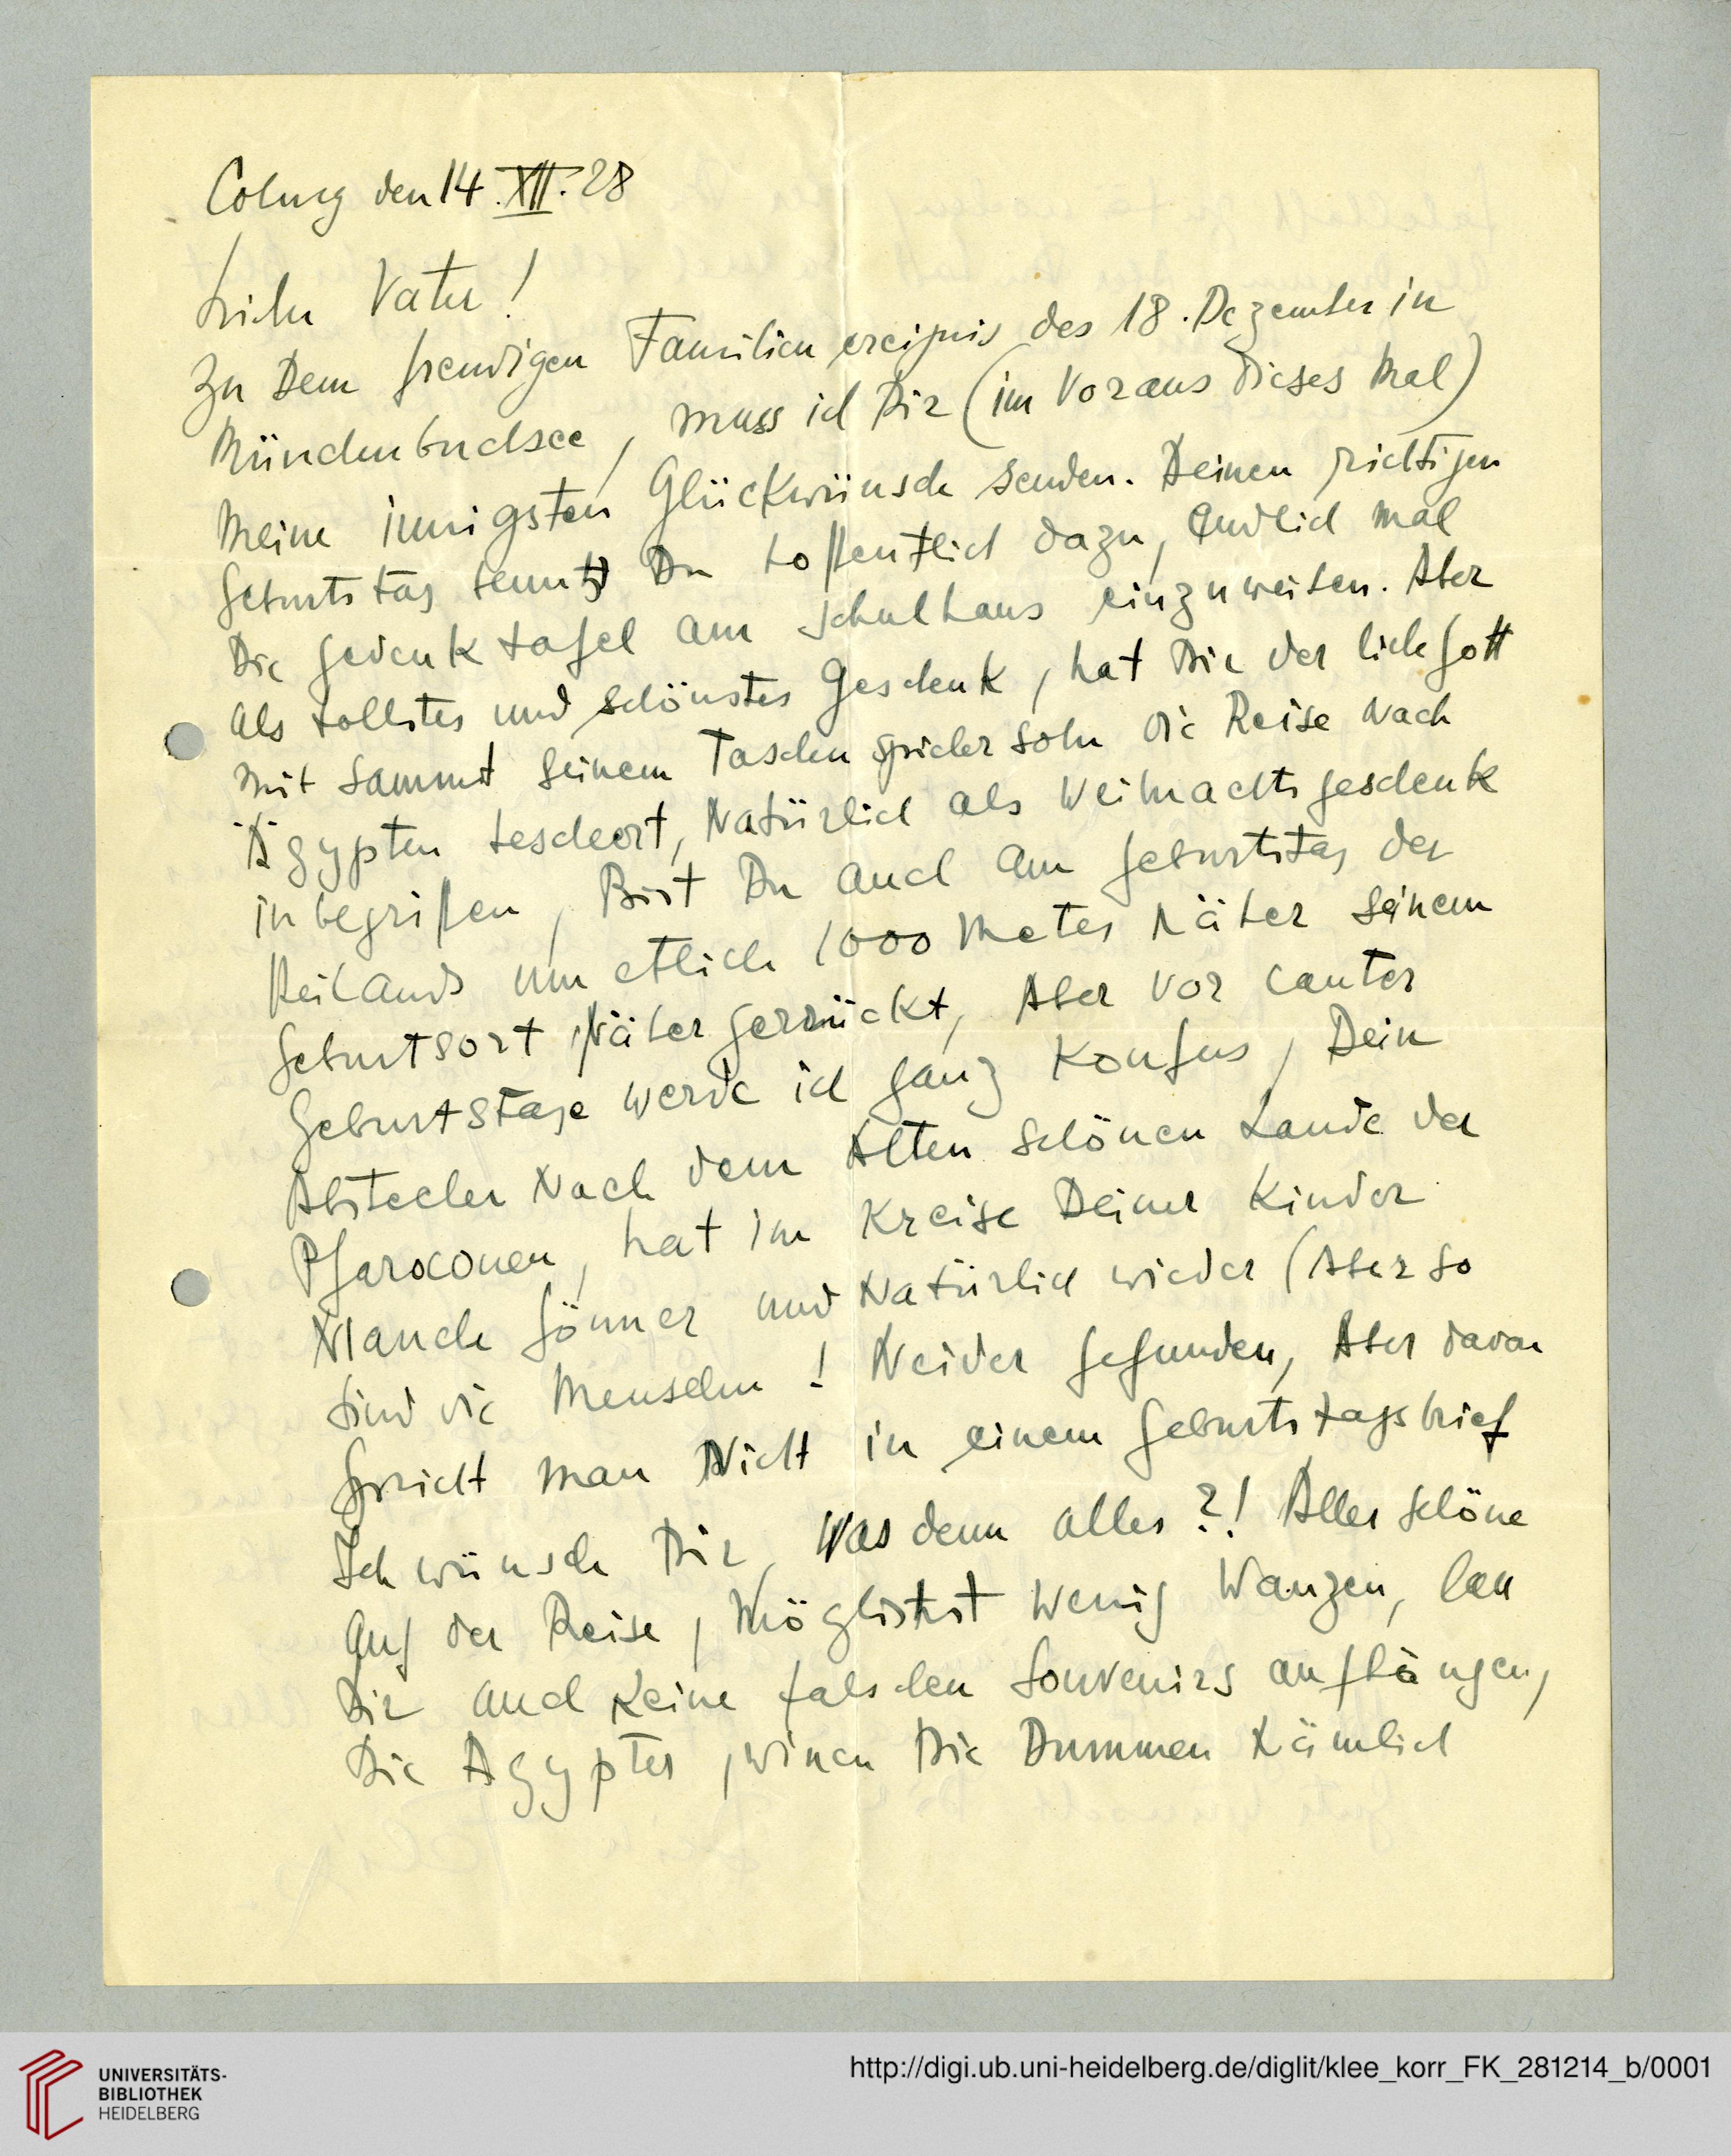 Coburg den 14.XII.28
Lieber Vater!
Zu Dem freudigen Familien ereignis des 18. Dezember in
Münchenbuchsee, muss ich Dir (im Voraus dieses Mal)
Meine innigsten Glückwünsche senden. Deinen richtigen
Geburtstag Du hoffentlich dazu, endlich mal
Die Gedenktafel am Schulhaus einzuweihen. Aber
als tollstes und schönstes Geschenk, hat Dir der liebe Gott
mit sammt seinem Taschenspielersohn die Reise Nach
Ägypten bescheert, Natürlich als Weihnachtsgeschenk
inbegriffen, Bist Du auch am Geburtstag des
Heilands um etliche 1000 Meter Näher seinem
Geburtsort Näher gerrückt, Aber vor lauter
Geburtstage werde ich ganz Konfus, Dein
Abstecher Nach dem Alten schönen Lande der
Pfaraonen, hat im Kreise Deiner Kinder
Manche Gönner und Natürlich wieder (Aber so
sind die Menschen! Neider gefunden, Aber davon
spricht man Nicht in einem Geburtstagsbrief
Ich wünsche Dir, Was denn alles?! Alles schöne
auf der Reise, Möglichst Wenig Wanzen, lass
Dir auch Keine falschen Souvenirs aufhängen,
Die Ägypter, Die Dummen Nämlich
UNIVERSITÄTS-
BIBLIOTHEK
HEIDELBERG
http://digi.ub.uni-heidelberg.de/diglit/klee_korr_FK_281214_b/0001